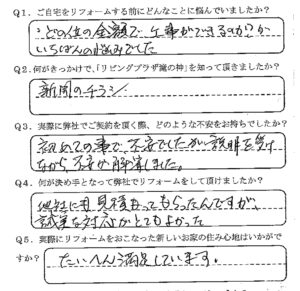 Q1. ご自宅をリフォームする前にどんなことに悩んでいましたか?
どの位の金額で、工事ができるのか?が
いちばんの悩みでした
Q2. 何がきっかけで、「リビングプラザ滝の神」を知って頂きましたか?
新聞のチラシ
Q3. 実際に弊社でご契約を頂く際、どのような不安をお持ちでしたか?
初めての事で、不安でしたが説明を受け
ながら、不安が解消しました。
Q4. 何が決め手となって弊社でリフォームをして頂けましたか?
他社にも見積もってもらったんですが、
誠実な対応がとてもよかった
Q5. 実際にリフォームをおこなった新しいお家の住み心地はいかがで
すか?
たいへん満足しています。